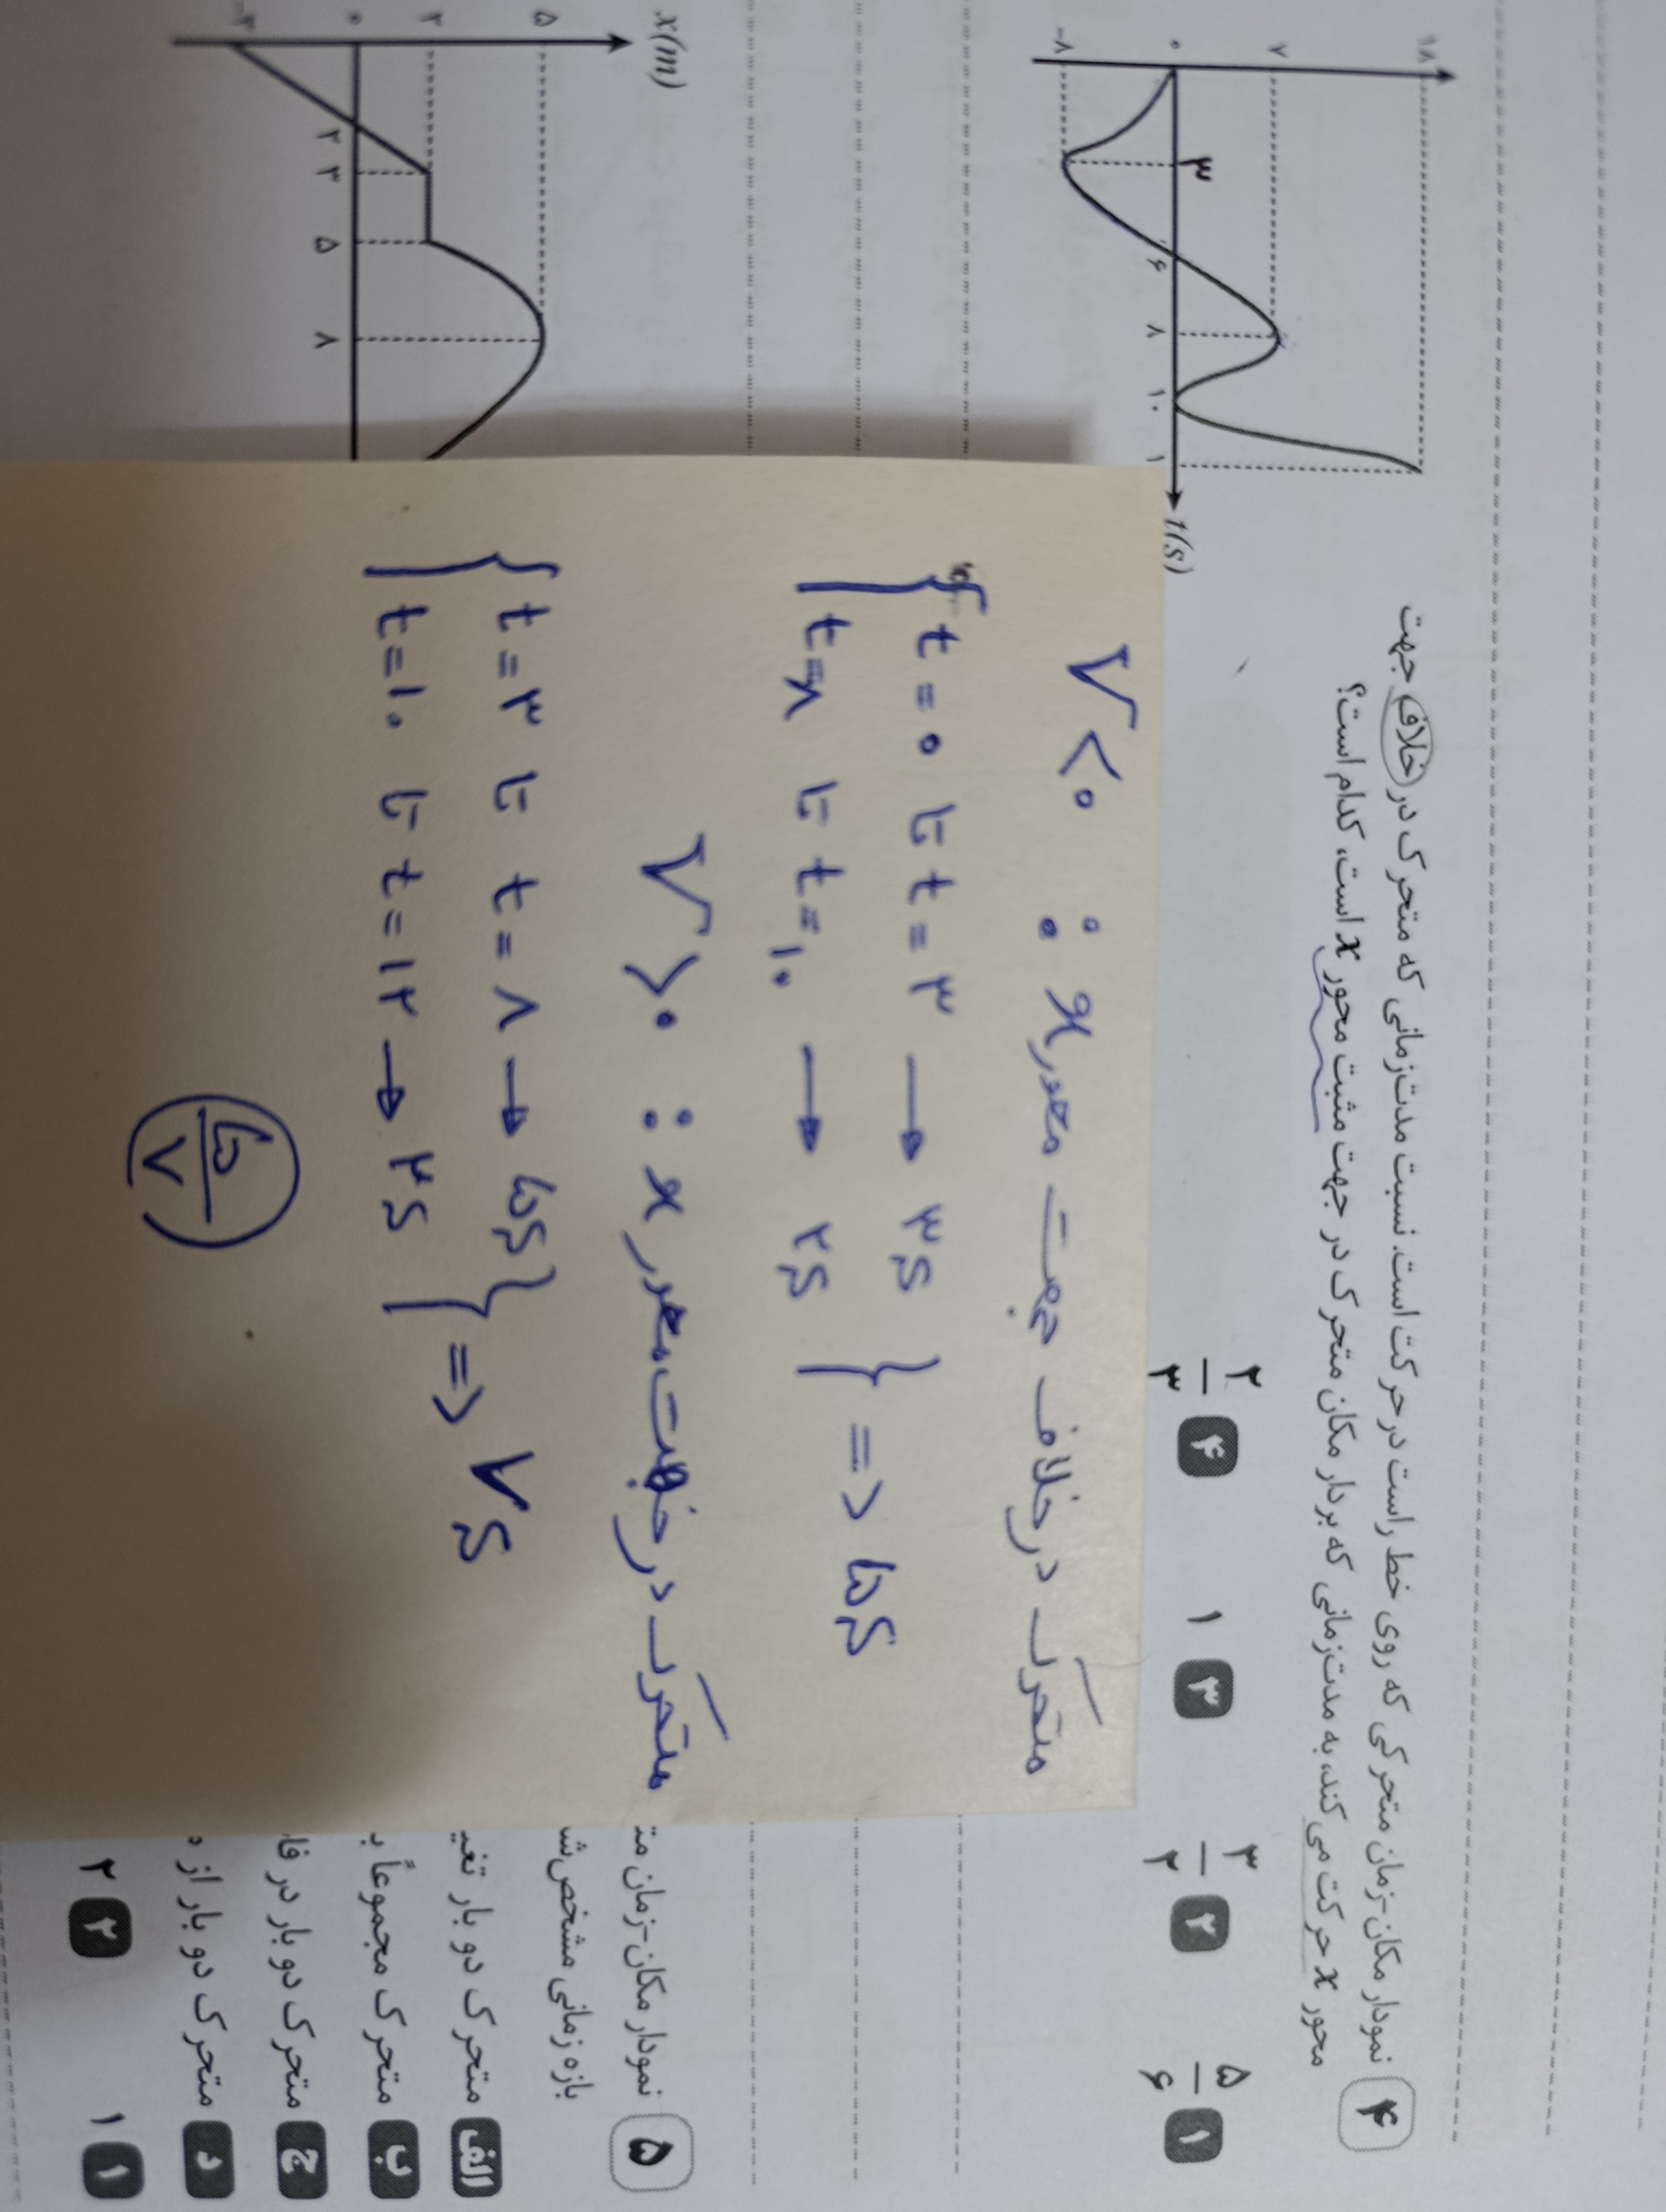 ۴ نمودار مکان-زمان متحرکی که روی خط راست در حرکت است. نسبت مدت‌زمانی که متحرک در خلاف جهت
محور x حرکت می‌کند، به مدت‌زمانی که بردار مکان متحرک در جهت مثبت محور x است، کدام است؟
۱ ۵/۶
۲ ۳/۲
۳ ۱
۴ ۲/۳
۱۸
۷
۰
-۸
۳ ۶ ۸ ۱۰ ۱
t(s)
متحرک در خلاف جهت محور x : V < ۰
t = ۰ تا t = ۳ → ۳s
t = ۸ تا t = ۱۰ → ۲s
=> ۵s
متحرک در جهت محور x : V > ۰
t = ۳ تا t = ۸ → ۵s
t = ۱۰ تا t = ۱۲ → ۲s
=> ۷s
۵/۷
۵ نمودار مکان-زمان مت
بازه زمانی مشخص‌ش
الف متحرک دو بار تغی
ب متحرک مجموعاً ب
ج متحرک دو بار در فا
د متحرک دو بار از م
۱ ۱
۲ ۲
x(m)
۵
۲
۰
۲ ۳ ۵ ۸